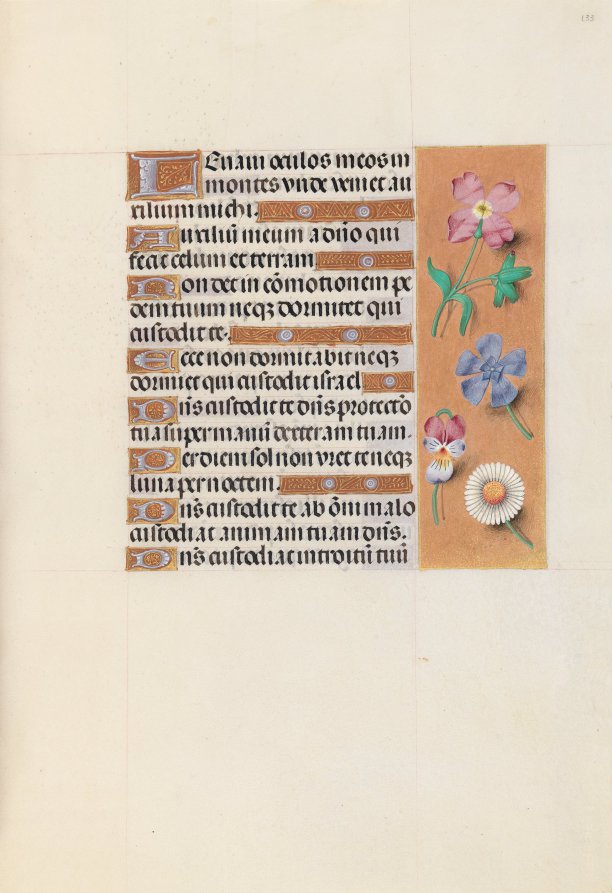 133
Leuaui oculos meos in
montes vnde veniet au
xilium michi.
Auxiliū meum a dn̄o qui
fecit celum et terram
Non det in cōmotionem pe
dem tuum neqꝫ dormitet qui
custodit te.
Ecce non dormitabit neqꝫ
dormiet qui custodit israel
Dn̄s custodit te dn̄s protectō
tua suꝑ manū dexteram tuam.
Per diem sol non vret te neqꝫ
luna per noctem.
Dn̄s custodit te ab ōm malo
custodiat animam tuam dn̄s.
Dn̄s custodiat introitū tuū